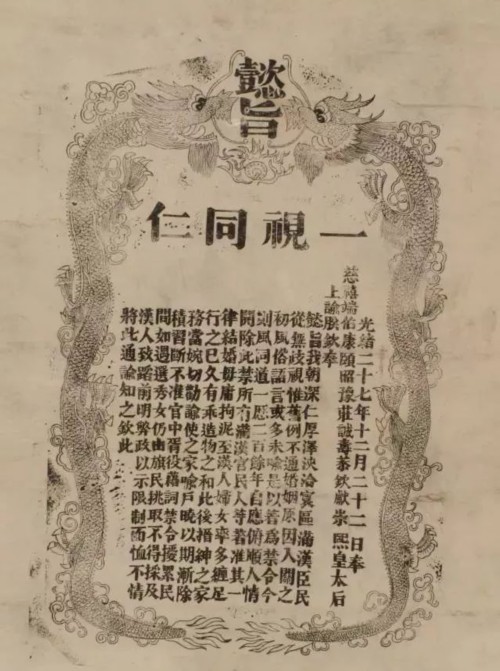 懿旨
一視同仁
光緒二十七年十二月二十三日奉
慈禧端佑康頤昭豫莊誠壽恭欽獻崇熙皇太后
上諭朕欽奉
懿旨我朝深仁厚澤浹洽寰區滿漢臣民
從無歧視惟舊例不通婚姻原因入關之
初風俗語言或多未喻是以著爲禁令今
則風同道一歷二百餘年自應俯順人情
開除此禁所有滿漢官民人等著准其一
律結婚毋庸拘泥至漢人婦女率多纏足
行之已久有乖造物之和此後搢紳之家
務當婉切勸諭使之家喻戶曉以期漸除
積習斷不准官中胥役藉詞禁令擾累民
間如遇選秀女仍由旗民挑取不得採及
漢人致蹈前明弊政以示限制而恤下情
將此通諭知之欽此